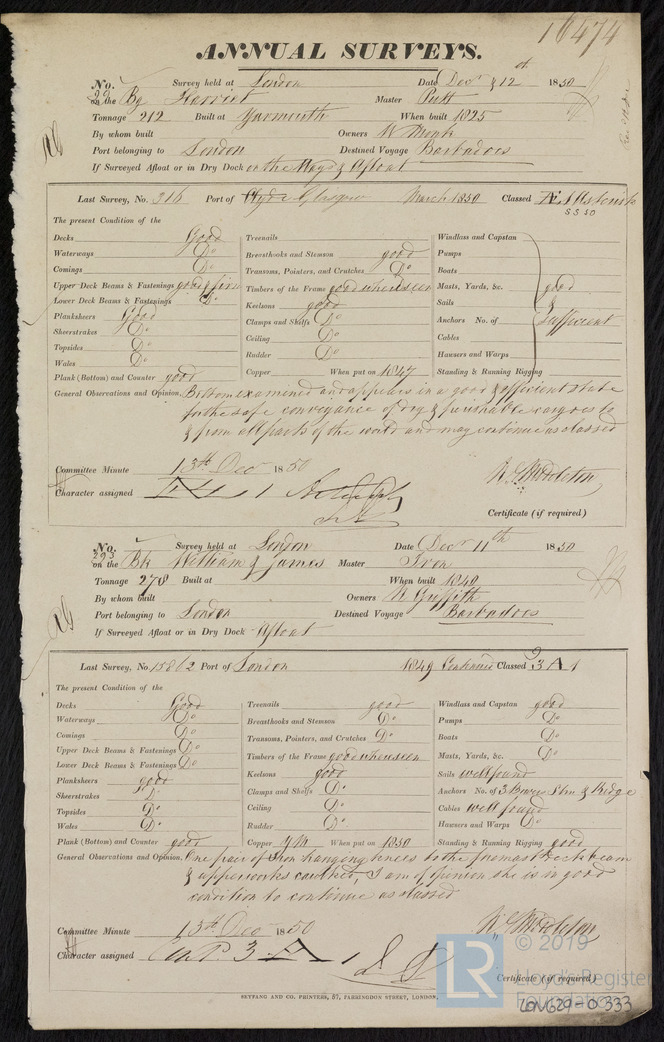 16474
ANNUAL SURVEYS.
No. Survey held at London Date Decr 12th 1850
on the Bg Harriet Master Putt
Tonnage 212 Built at Yarmouth When built 1825
By whom built Owners W Monk
Port belonging to London Destined Voyage Barbadoes
If Surveyed Afloat or in Dry Dock on the Ways & Afloat
Last Survey, No. 316 Port of Clyde Glasgow March 1850 Classed Æ1
The present Condition of the
Decks Good Treenails Windlass and Capstan
Waterways Do Breasthooks and Stemson good Pumps
Comings Do Transoms, Pointers, and Crutches Do Boats
Upper Deck Beams & Fastenings good & firm Timbers of the Frame good when seen Masts, Yards, &c. good
Lower Deck Beams & Fastenings Do Keelsons good Sails &
Planksheers Good Clamps and Shelfs Do Anchors No. of sufficient
Sheerstrakes Do Ceiling Do Cables
Topsides Do Rudder Do Hawsers and Warps
Wales Do Copper When put on 1847 Standing & Running Rigging
Plank (Bottom) and Counter good
General Observations and Opinion, Bottom examined and appears in a good & efficient state
for the safe conveyance of dry & perishable cargoes to
& from all parts of the world and may continue as classed
Committee Minute 13th Decr 1850
Character assigned Æ 1
Certificate (if required)
No. 293 Survey held at London Date Decr 11th 1850
on the Bk William & James Master Iver
Tonnage 278 Built at When built 1840
By whom built Owners R Griffith
Port belonging to London Destined Voyage Barbadoes
If Surveyed Afloat or in Dry Dock Afloat
Last Survey, No 15862 Port of London 1849 Continued Classed 3 A 1
The present Condition of the
Decks Good Treenails good Windlass and Capstan good
Waterways Do Breasthooks and Stemson Do Pumps Do
Comings Do Transoms, Pointers, and Crutches Do Boats Do
Upper Deck Beams & Fastenings Do Timbers of the Frame good when seen Masts, Yards, &c. Do
Lower Deck Beams & Fastenings Do Keelsons good Sails well found
Planksheers good Clamps and Shelfs Do Anchors No. of 3 Bower Strm & Kedge
Sheerstrakes Do Ceiling Do Cables well found
Topsides Do Rudder Do Hawsers and Warps Do
Wales Do Copper YM When put on 1850 Standing & Running Rigging good
Plank (Bottom) and Counter good
General Observations and Opinion, One pair of Iron hanging knees to the foremast Deck beam
& upperworks caulked, I am of opinion she is in good
condition to continue as classed
Committee Minute 13th Decr 1850
Character assigned Con P. 3 A 1
Certificate (if required)
SEYFANG AND CO. PRINTERS, 57, FARRINGDON STREET, LONDON.
LR © 2019
Lloyd's Register
Foundation
LON629-0333